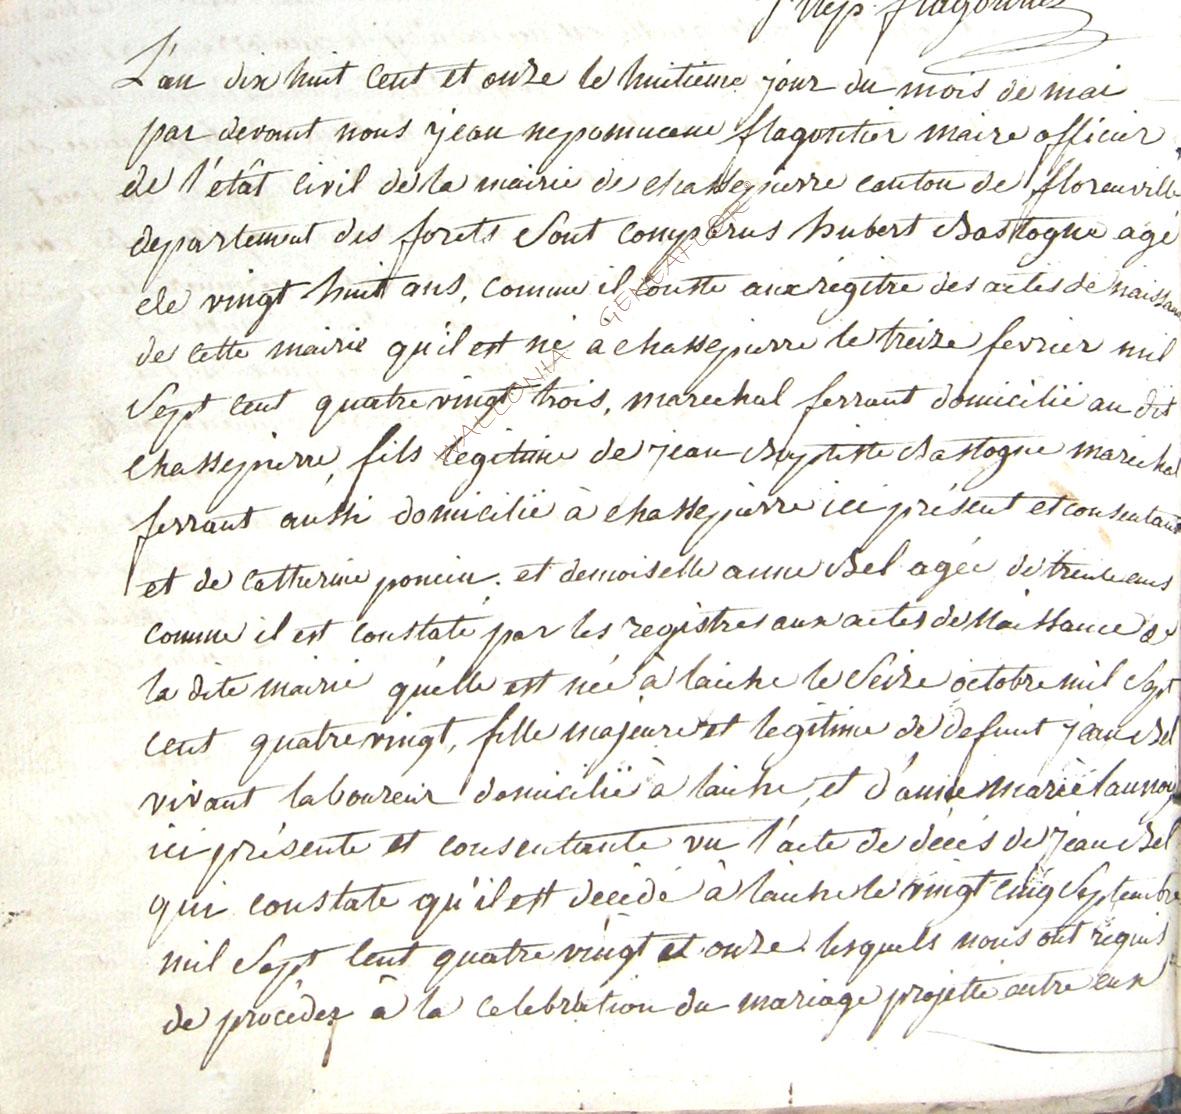 nep. flagontier
L'an dix huit cent et onze le huitieme jour du mois de mai
par devant nous jean nepomucene flagontier maire officier
de l'etât civil de la mairie de chassepierre canton de florenville
departement des forets sont comparus hubert Bastogne agé
de vingt huit ans, comme il conste aux régitre des actes de naissance
de cette mairie qu'il est né a chassepierre le treize fevrier mil
Sept cent quatre vingt trois, marechal ferrant domicilié au dit
chassepierre, fils legitime de jean Baptiste Bastogne marechal
ferrant aussi domicilié à chassepierre ici présent et consentant
et de catherine poncin. et demoiselle anne Bel agée de trente ans
comme il est constaté par les registres aux actes de Naissance de
la dite mairie quélle est née à laiche le Seize octobre mil Sept
cent quatre vingt, fille majeure et legitime de defunt jean Bel
vivant laboureur domicilié à laiche, et d'anne Marie launoy
ici présente et consentante vu l'acte de décés de jean Bel
qui constate qu'il est decédé à laiche le vingt cinq Septembre
mil Sept Cent quatre vingt et onze. lesquels nous ont requis
de procédez à la celebration du mariage projetté entre eux
WALLONIA GENEAHLOGR